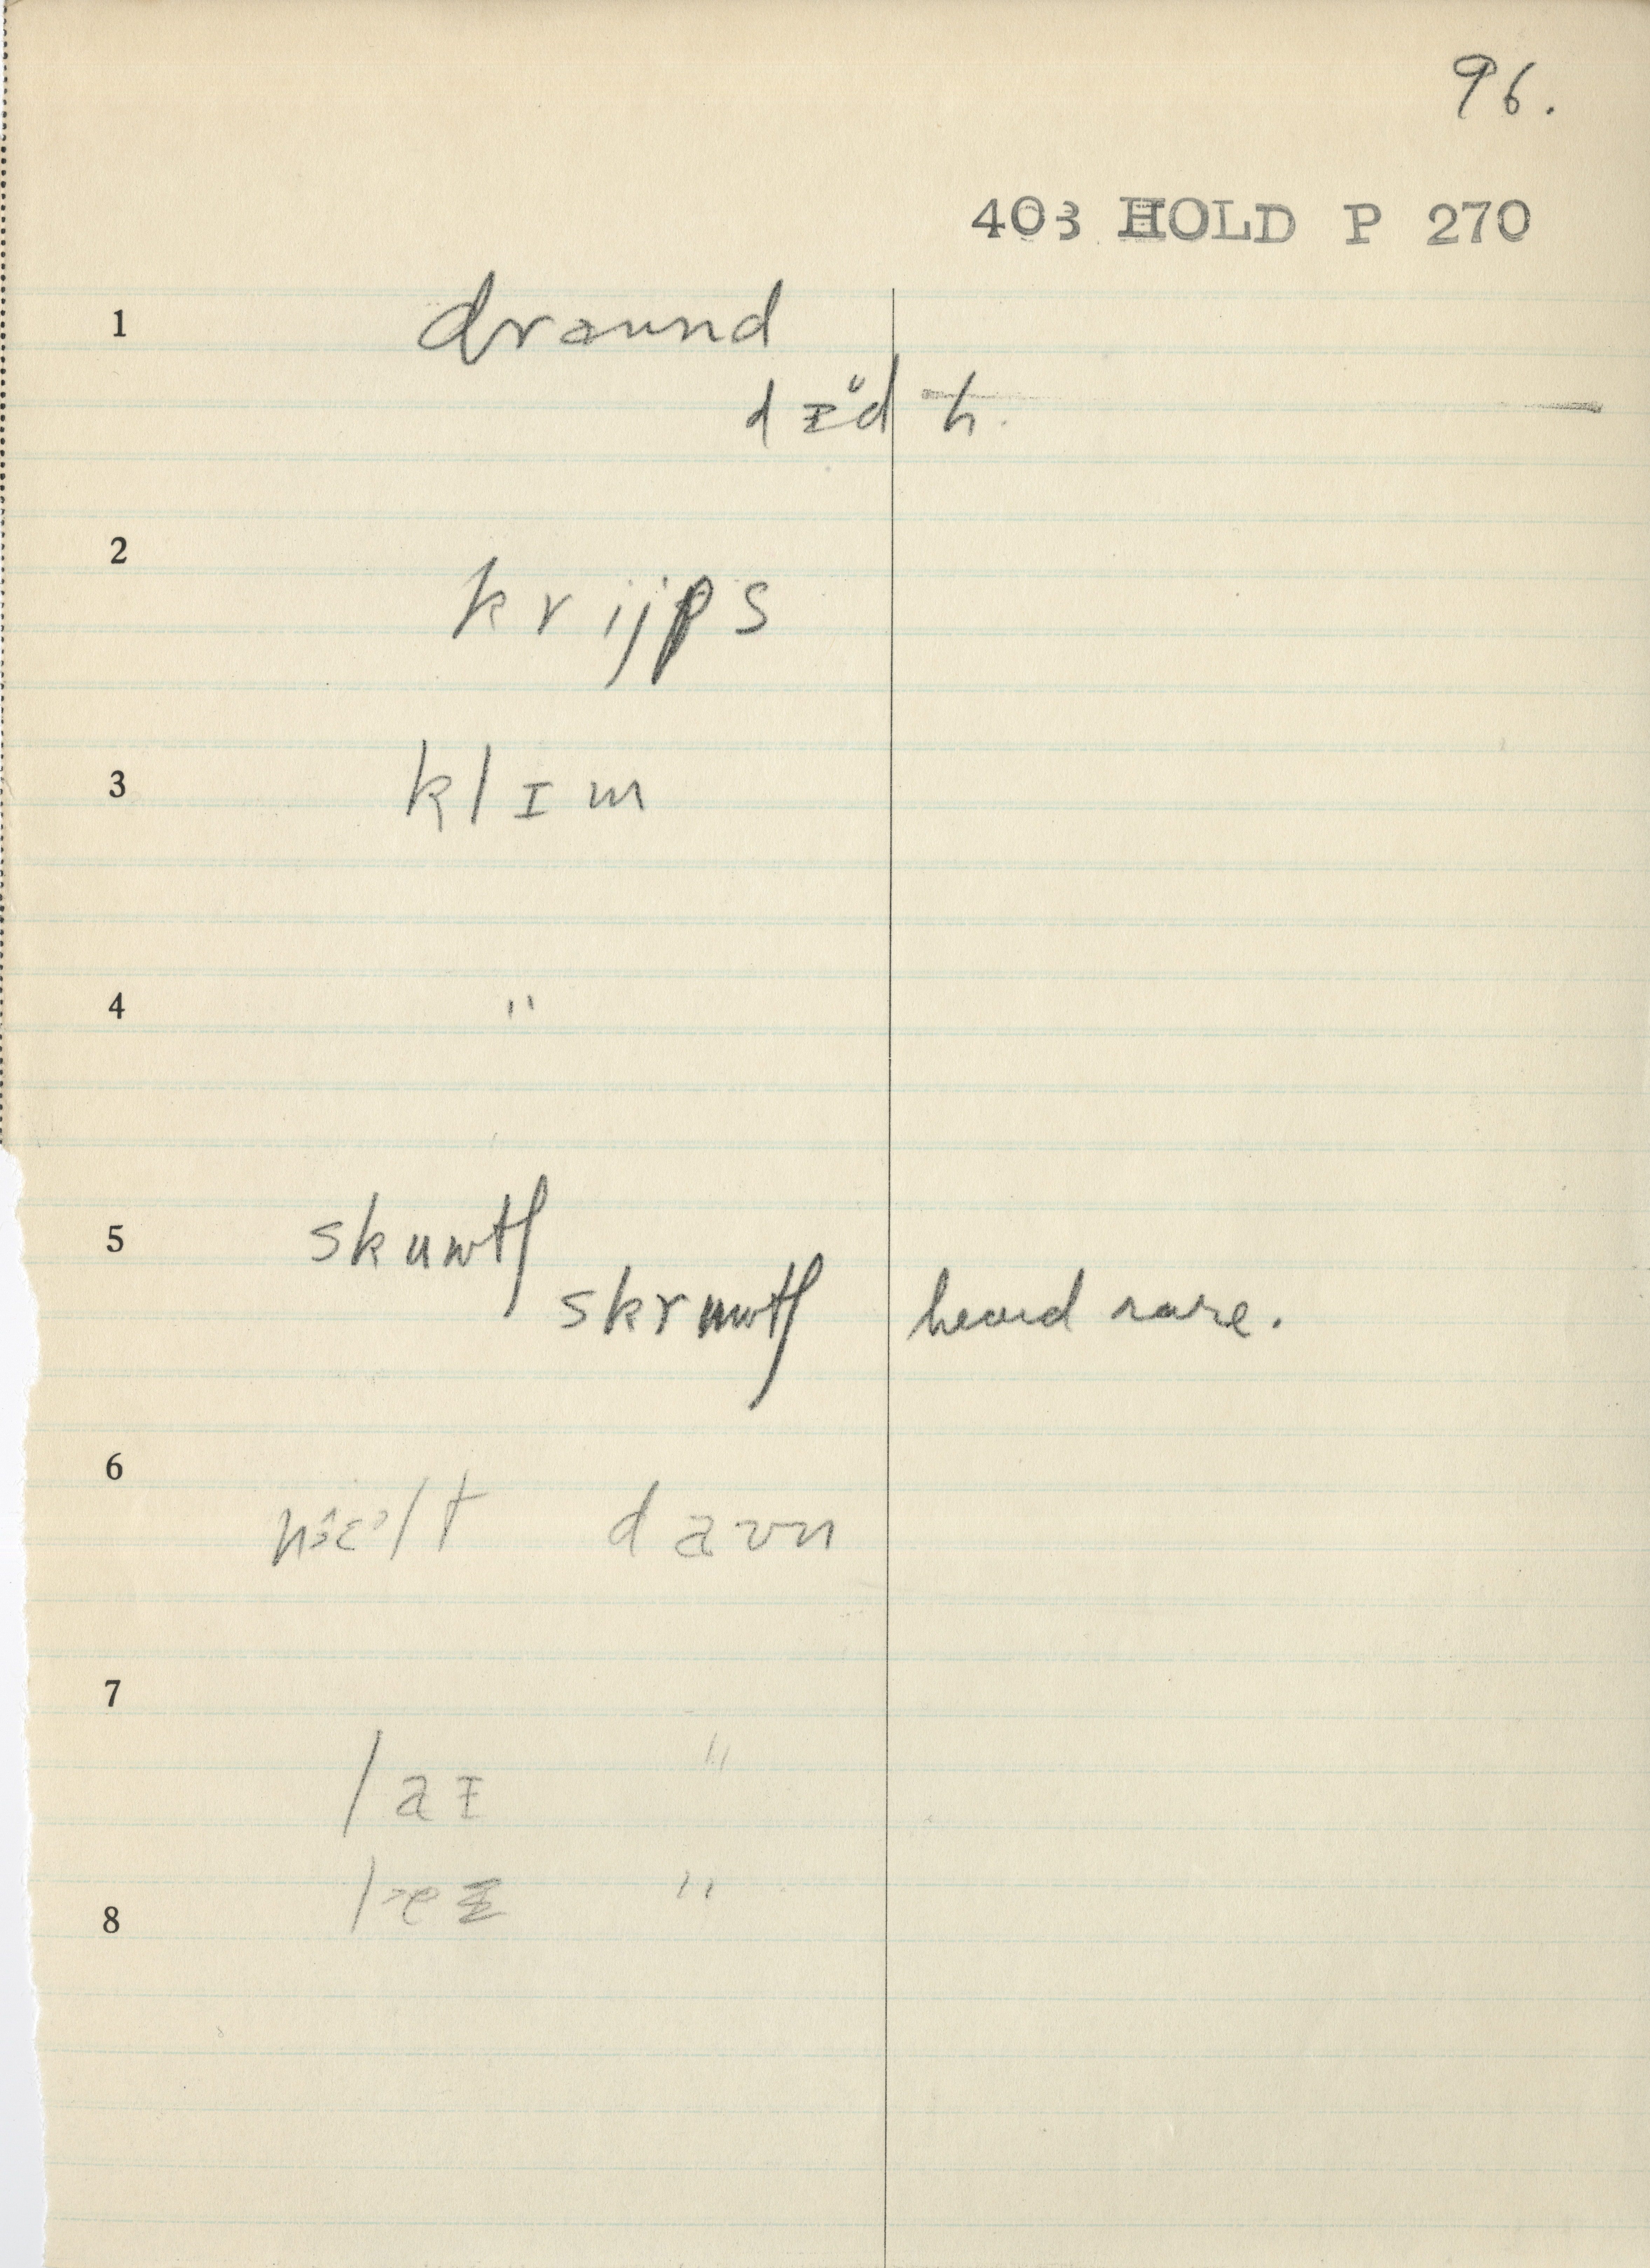 96.
403 HOLD P 270
1 draund
dɪd
2 krijps
3 klɪm
4 "
5 skuwtʃ
skruwtʃ heard rare.
6 daʊn
7
laɪ "
8 "